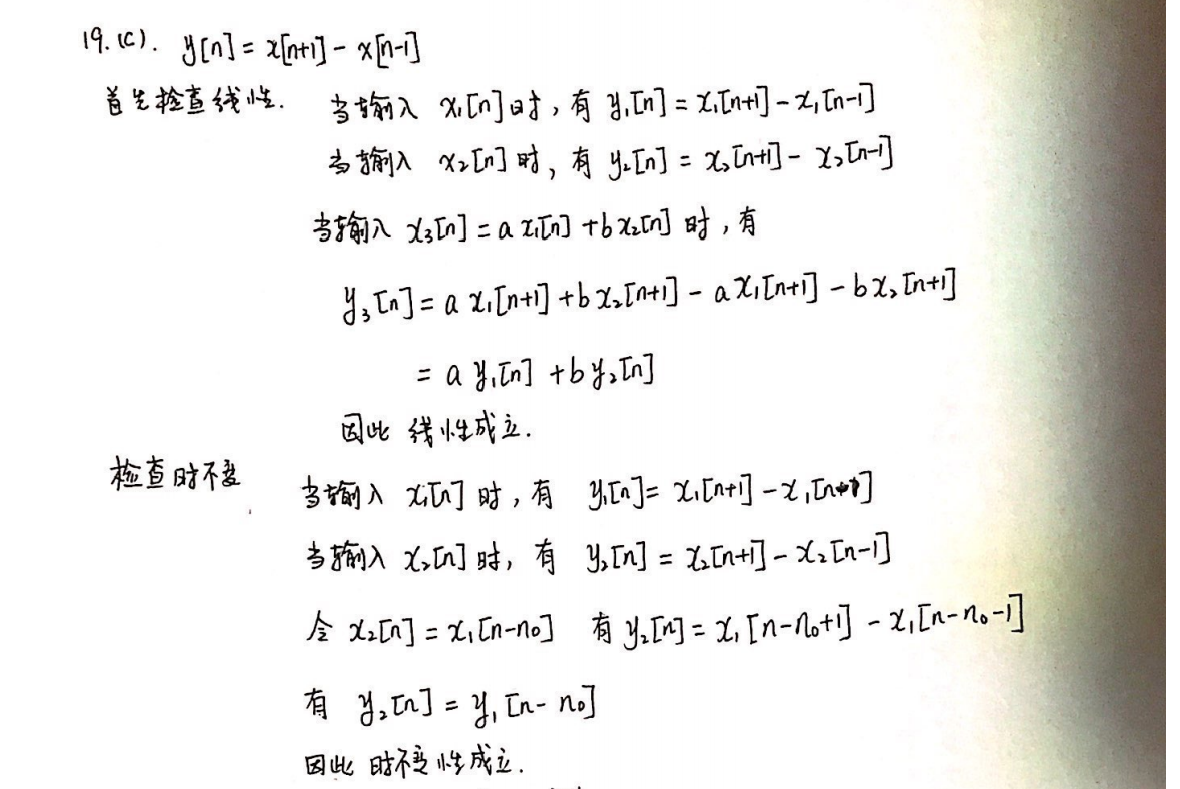 19.(c). y[n] = x[n+1] - x[n-1]
首先检查线性. 当输入 x₁[n]时，有 y₁[n] = x₁[n+1] - x₁[n-1]
当输入 x₂[n]时，有 y₂[n] = x₂[n+1] - x₂[n-1]
当输入 x₃[n] = a x₁[n] + b x₂[n] 时，有
y₃[n] = a x₁[n+1] + b x₂[n+1] - a x₁[n+1] - b x₂[n+1]
= a y₁[n] + b y₂[n]
因此 线性成立.
检查时不变 当输入 x₁[n] 时，有 y₁[n] = x₁[n+1] - x₁[n-1]
当输入 x₂[n] 时，有 y₂[n] = x₂[n+1] - x₂[n-1]
令 x₂[n] = x₁[n-n₀] 有 y₂[n] = x₁[n-n₀+1] - x₁[n-n₀-1]
有 y₂[n] = y₁[n-n₀]
因此 时不变性成立.